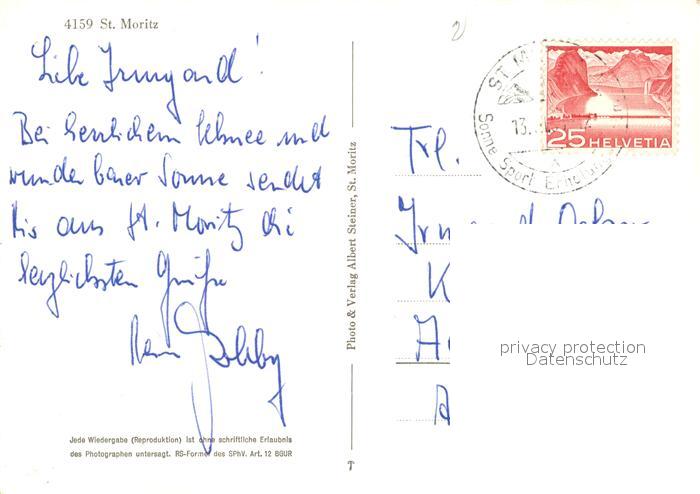 4159 St. Moritz
Liebe Irmgard!
Bei herrlichem Schnee und
wunderbarer Sonne sendet
Dir aus St. Moritz die
herzlichsten Grüße
Dein
Photo & Verlag Albert Steiner, St. Moritz
Jede Wiedergabe (Reproduktion) ist ohne schriftliche Erlaubnis
des Photographen untersagt. RS-Formel des SPhV. Art. 12 BGUR
ST. M
13.
Sonne Sport
25 HELVETIA
Frl.
Irm
K
A
privacy protection
Datenschutz